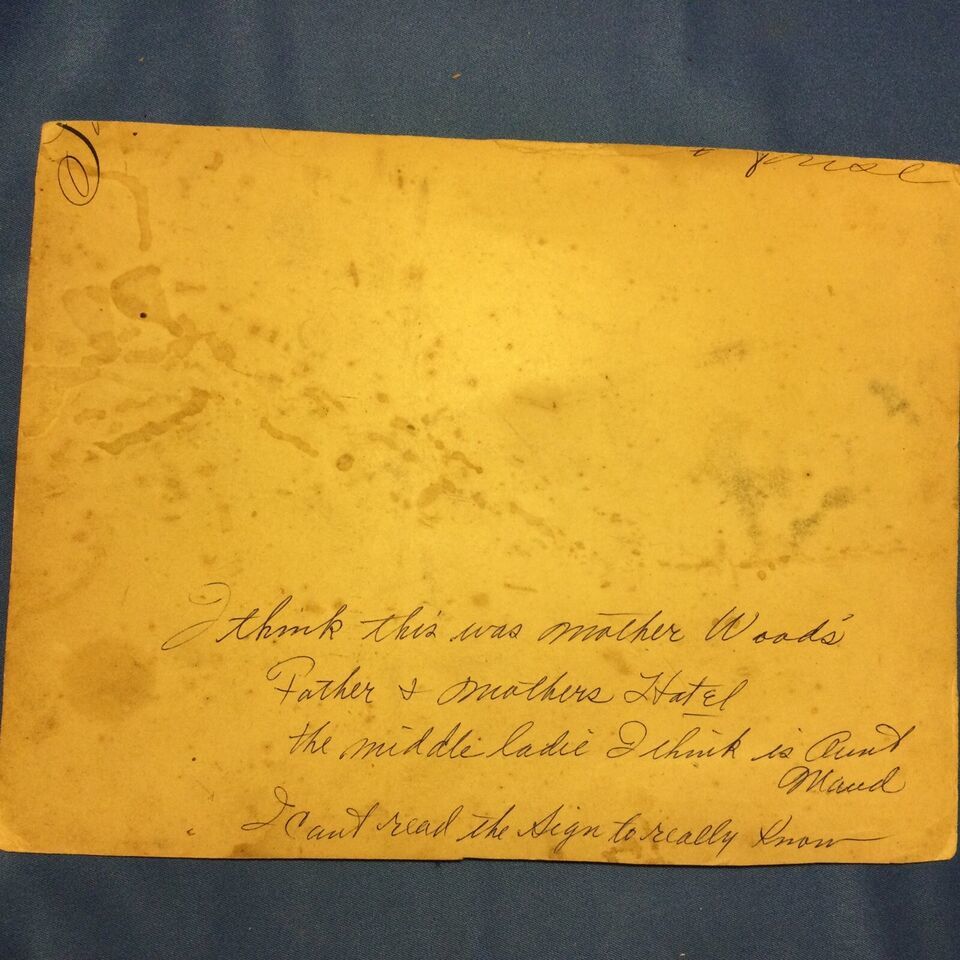 I think this was mother Woods'
Father & mothers Hotel
the middle ladie I think is Aunt
Maud
I cant read the sign to really know